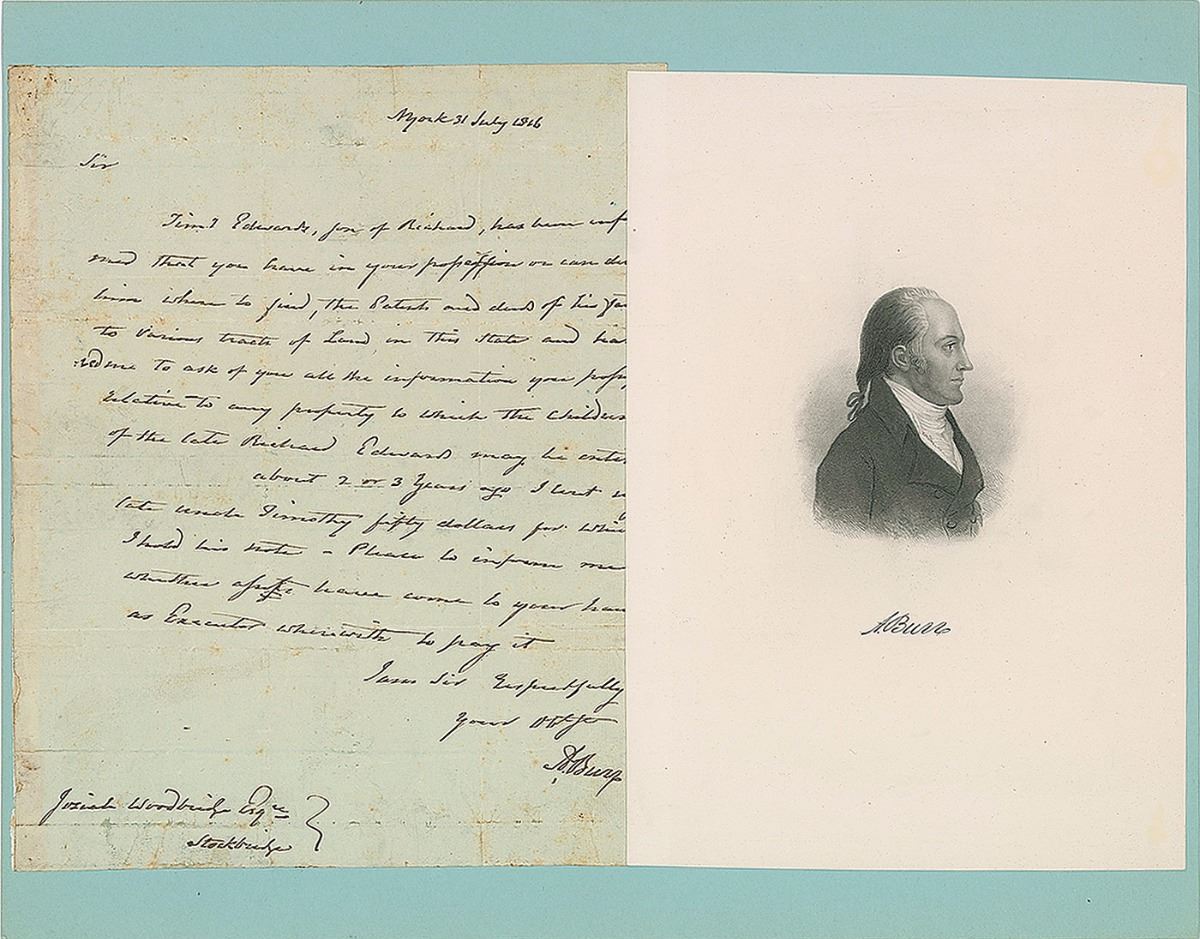 NYork 31 July 1816
Sir
Timy Edwards, son of Richard, has been inf
med that you have in your possession or can di
him where to find, the Patents and deeds of his fa
to various tracts of Land in this State and has
me to ask of you all the information you poss
relative to any property to which the children
of the late Richard Edwards may be enti
about 2 or 3 Years ago I lent my
late uncle Timothy fifty dollars for whi
I hold his note - Please to inform me
whether assets have come to your han
as Executor wherewith to pay it
I am Sir respectfully
your Obt st
A. Burr
Josiah Woodbridge Esqre
Stockbridge
A. Burr